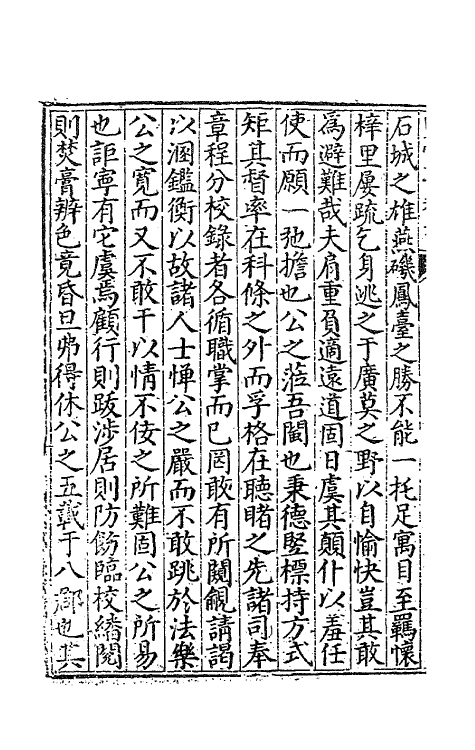 石城之雄燕磯鳳臺之勝不能一托足寓目至羈懷
梓里屢疏乞身逃之于廣莫之野以自愉快豈其敢
爲避難哉夫肩重負適遠道固日虞其顛仆以羞任
使而願一弛擔也公之蒞吾閩也秉德竪標持方式
矩其督率在科條之外而孚格在聽睹之先諸司奉
章程分校錄者各循職掌而已罔敢有所闚覦請謁
以溷鑑衡以故諸人士惮公之嚴而不敢跳於法樂
公之寬而又不敢干以情不佞之所難固公之所易
也詎寧有它虞焉顧行則跋涉居則防飭臨校繙閱
則焚膏辨色竟昏旦弗得休公之五載于八郡也其